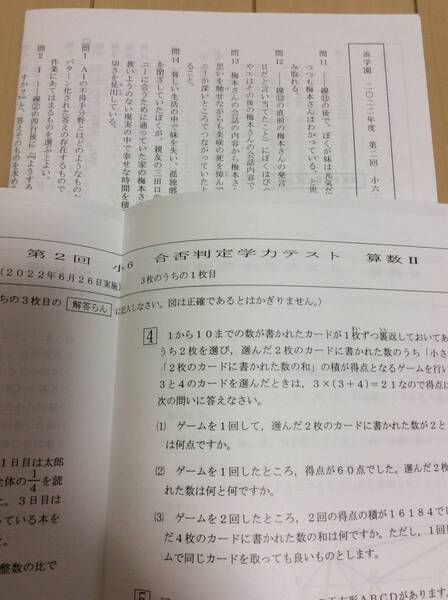 浜学園 二〇二二年度 第二回 小六
問11 ――線⑪の後で、「ぼくが妹は元気だ
つつも梅本さんはわかっている」と思
み取れる。
問12 ――線⑫の直前の梅本さんの発言
問13 梅本さんの会話の内容から
思いを馳せながらも美咲の死を悼んで
ニーが深いところでつながっていった
ること。
問14 貧しい生活の中で妹を失い、孤独感
を閉ざしていたぼくが、親友の三田口の
ニーに会うために通っていた家の梅本さ
救いようのない現実の中で幸せな時間を積
切さを見出している。
問1 AIの不得手分野とはどのようなもの
パターン化された答えの存在するもので
作業にあてはまるものを選ぶとよい。
第2回 小6 合否判定学力テスト 算数Ⅱ
(2022年6月26日実施)
3枚のうちの1枚目
ちの3枚目の 解答らん に記入しなさい。図は正確であるとはかぎりません。)
4 1から10までの数が書かれたカードが1枚ずつ裏返しておいてあ
うち2枚を選び,選んだ2枚のカードに書かれた数のうち「小さ
「2枚のカードに書かれた数の和」の積が得点となるゲームを行い
3と4のカードを選んだときは,3×(3+4)=21なので得点は
次の問いに答えなさい。
(1) ゲームを1回して,選んだ2枚のカードに書かれた数が2と
は何点ですか。
(2) ゲームを1回したところ,得点が60点でした。選んだ2枚
れた数は何と何ですか。
(3) ゲームを2回したところ,2回の得点の積が16184で
だ4枚のカードに書かれた数の和は何ですか。ただし,1回
ムで同じカードを取っても良いものとします。
1日目は太郎
全体の1/4を読
た。3日目は
っている本を
整数の比で
5
正方形ABCDがあります。